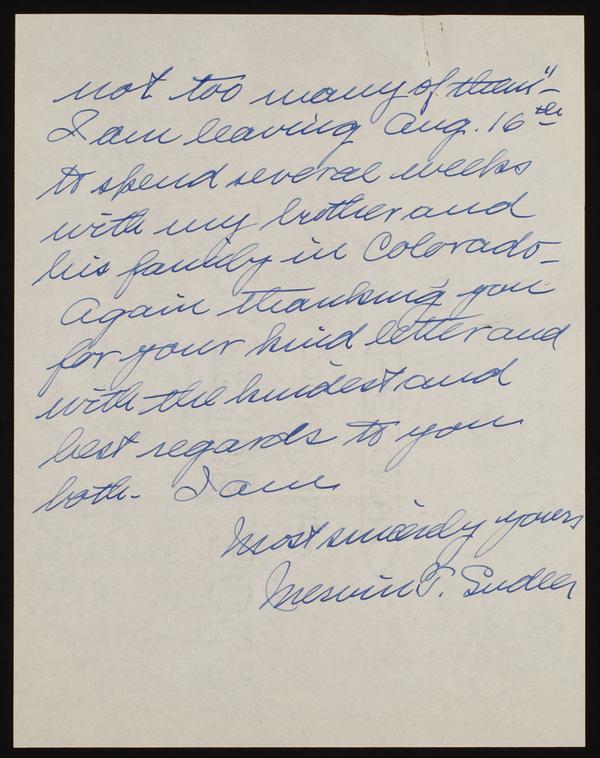 not too many of them"—
I am leaving Aug. 16th
to spend several weeks
with my brother and
his family in Colorado—
Again thanking you
for your kind letter and
with the kindest and
best regards to you
both. I am
Most sincerely yours
Mervin T. Sudler